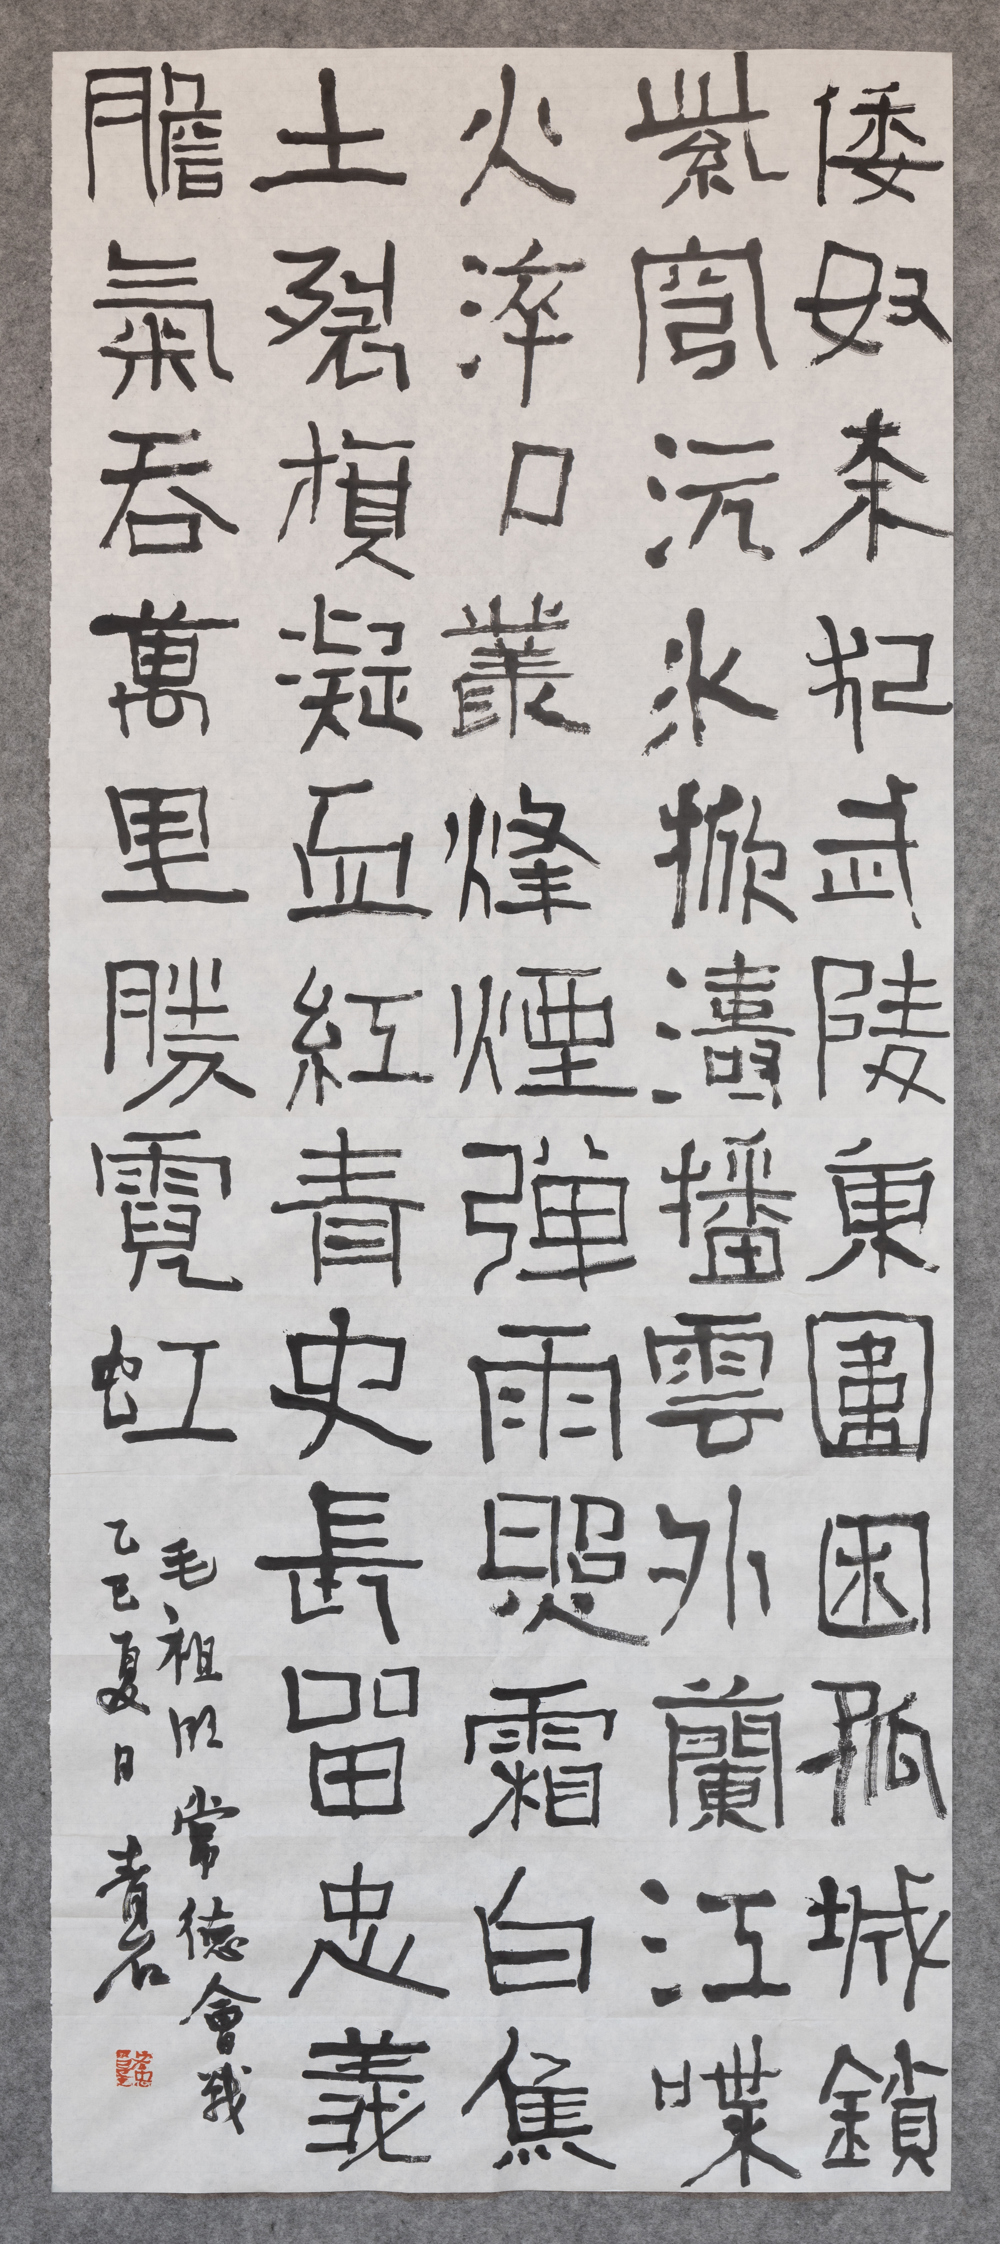 倭奴来犯武陵東圍困孤城鎖
紫穹沅水掀濤播雲外蘭江喋
火淬口叢烽煙彈雨照霜白焦
土裂楨凝血紅青史長留忠義
膽氣吞萬里勝霓虹
毛祖明常德會戰
乙巳夏日青石